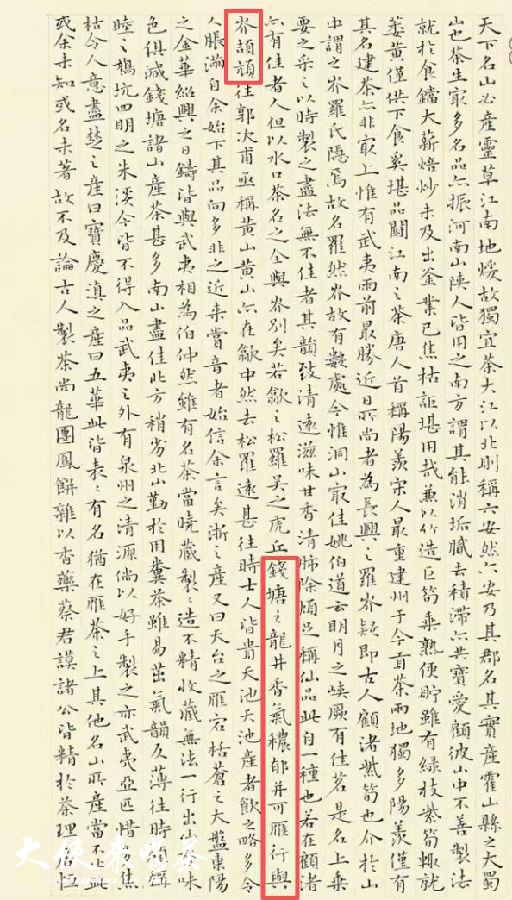 天下名山必產靈草江南地煖故獨宜茶大江以北則稱六安然六安乃其郡名其實產霍山縣之大蜀
山也茶生最多名品亦振河南山陝人皆用之南方謂其能消垢膩去積滯亦共寶愛顧彼山中不善製法
就於食鐺大薪焙炒未及出釜業已焦枯詎堪用哉兼以竹造巨笱乘熱便貯雖有綠枝紫筍輒就
萎黃僅供下食奚堪品鬭江南之茶唐人首稱陽羨宋人最重建州于今貢茶兩地獨多陽羨僅有
其名建茶亦非最上惟有武夷雨前最勝近日所尚者為長興之羅岕疑即古人顧渚紫筍也介於山
中謂之岕羅氏隱焉故名羅然岕故有數處今惟洞山最佳姚伯道云明月之峽厥有佳茗是名上乘
要之采之以時製之盡法無不佳者其韻致清遠滋味甘香清肺除煩足稱仙品此自一種也若在顧渚
亦有佳者人但以水口茶名之全與岕別矣若歙之松羅吳之虎丘錢塘之龍井香氣穠郁并可雁行與
岕頡頏往郭次甫亟稱黃山黃山亦在歙中然去松羅遠甚往時士人皆貴天池天池產者飲之略多令
人脹滿自余始下其品向多非之近來賞音者始信余言矣浙之產又曰天台之雁宕枯蒼之大盤東陽
之金華紹興之日鑄皆與武夷相為伯仲然雖有名茶當曉藏製製造不精收藏無法一行出山香味
色俱減錢塘諸山產茶甚多南山盡佳此方稍劣北山勤於用糞茶雖易茁氣韻反薄往時稱
睦之鳩坑四明之朱溪今皆不得入品武夷之外有泉州之清源倘以好手製之亦武夷亞匹惜焦
枯令人意盡楚之產曰寶慶滇之產曰五華此皆表表有名猶在雁茶之上其他名山所產當不止此
或余未知或名未著故不及論古人製茶尚龍團鳳餅雜以香藥蔡君謨諸公皆精於茶理恒